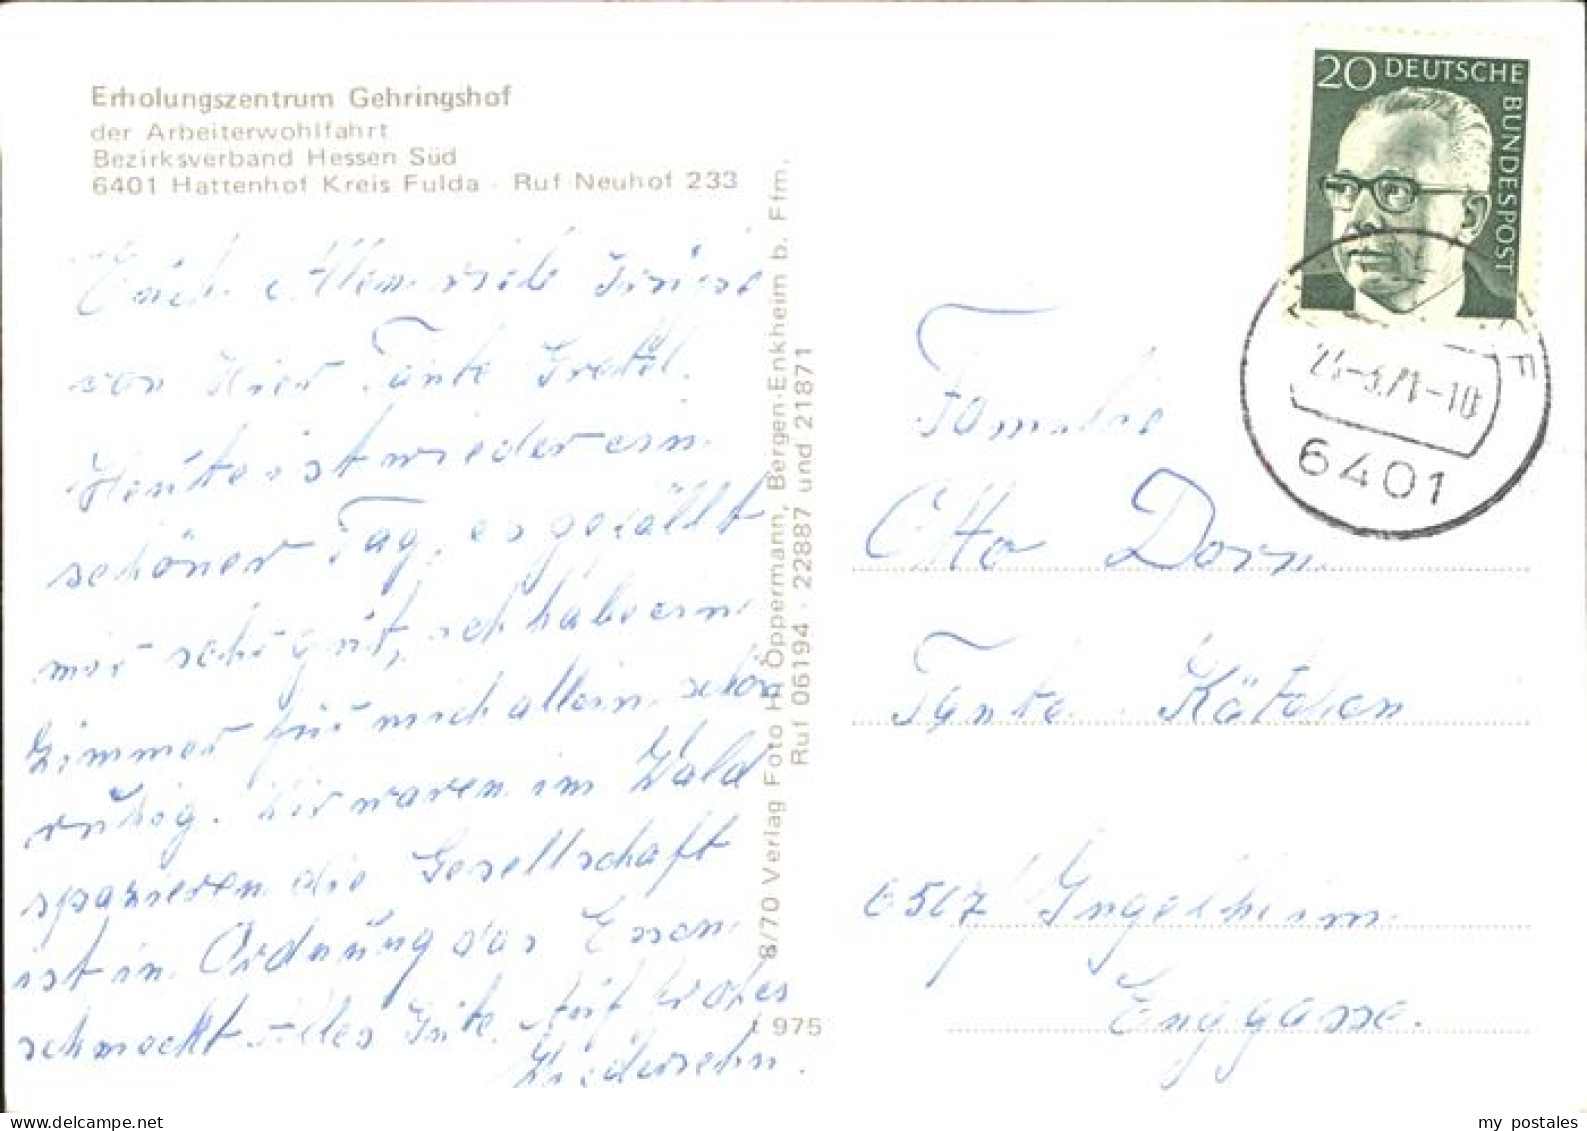 Erholungszentrum Gehringshof
der Arbeiterwohlfahrt
Bezirksverband Hessen Süd
6401 Hattenhof Kreis Fulda · Ruf Neuhof 233
Euch Allen viele Grüße
von hier Tante Gretel.
Heute ist wieder ein
schöner Tag, es gefällt
mir sehr gut, ich habe ein
Zimmer für mich allein schön
ruhig. Wir waren im Wald
spazieren die Gesellschaft
ist in Ordnung das Essen
schmeckt. Alles Gute. Auf frohes
Wiedersehn.
8/70 Verlag Foto H. Oppermann, Bergen-Enkheim b. Ffm.
Ruf 06194 · 22887 und 21871
975
20 DEUTSCHE BUNDESPOST
6401
Familie
Otto Dorn
Tante Kätchen
6507 Ingelheim
Enggasse.
my postales